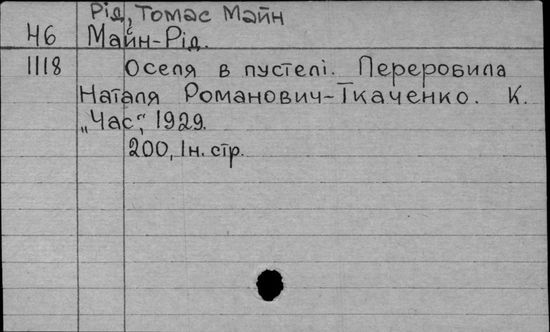 Рід, Томас Майн
Н6 Майн-Рід.
1118 Оселя в пустелі. Переробила
Наталя Романович-Ткаченко. К.
„Час", 1929.
200, Ін. стр.